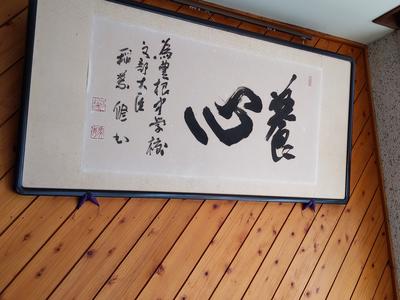 養心
為豊根中学校
文部大臣
稲葉修書